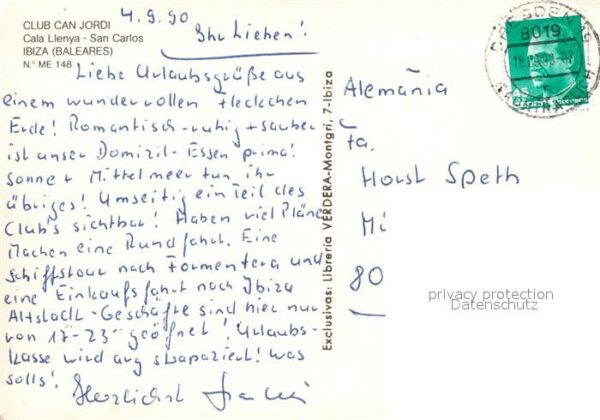 CLUB CAN JORDI
Cala Llenya - San Carlos
IBIZA (BALEARES)
N.º ME 148
4.9.90
Ihr Lieben!
Liebe Urlaubsgrüße aus
einem wundervollen Fleckchen
Erde! Romantisch-ruhig + sauber
ist unser Domizil - Essen prima!
Sonne + Mittelmeer tun ihr
übriges! Umseitig ein Teil des
Club's sichtbar! Haben viel Pläne
Machen eine Rundfahrt. Eine
Schiffstour nach Formentera und
eine Einkaufsfahrt nach Ibiza
Altstadt - Geschäfte sind hier nur
von 17-23°° geöffnet! Urlaubs-
kasse wird arg strapaziert! was
solls!
Herzlichst
Exclusivas: Librería VERDERA-Montgrí, 7-Ibiza
8019
Alemania
Horst Speth
80
privacy protection
Datenschutz